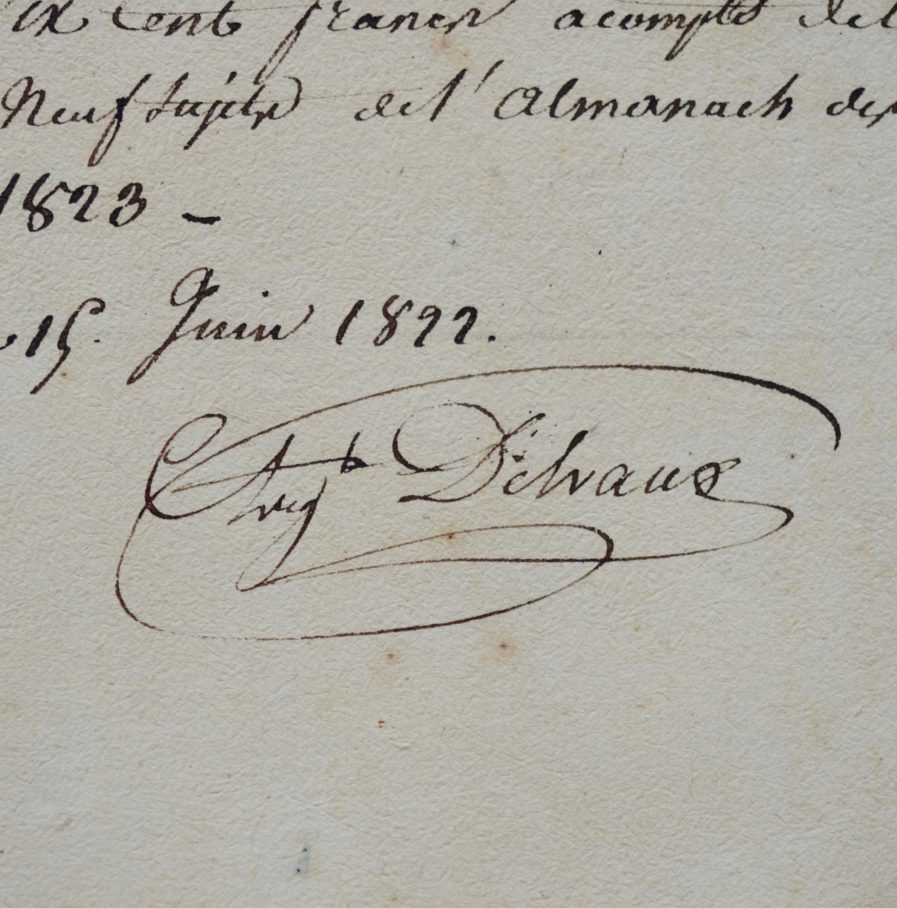 ix Cent francs acompte del
Neuf Sujets del' Almanach des
1823 -
15. Juin 1822.
Augte Delvaux